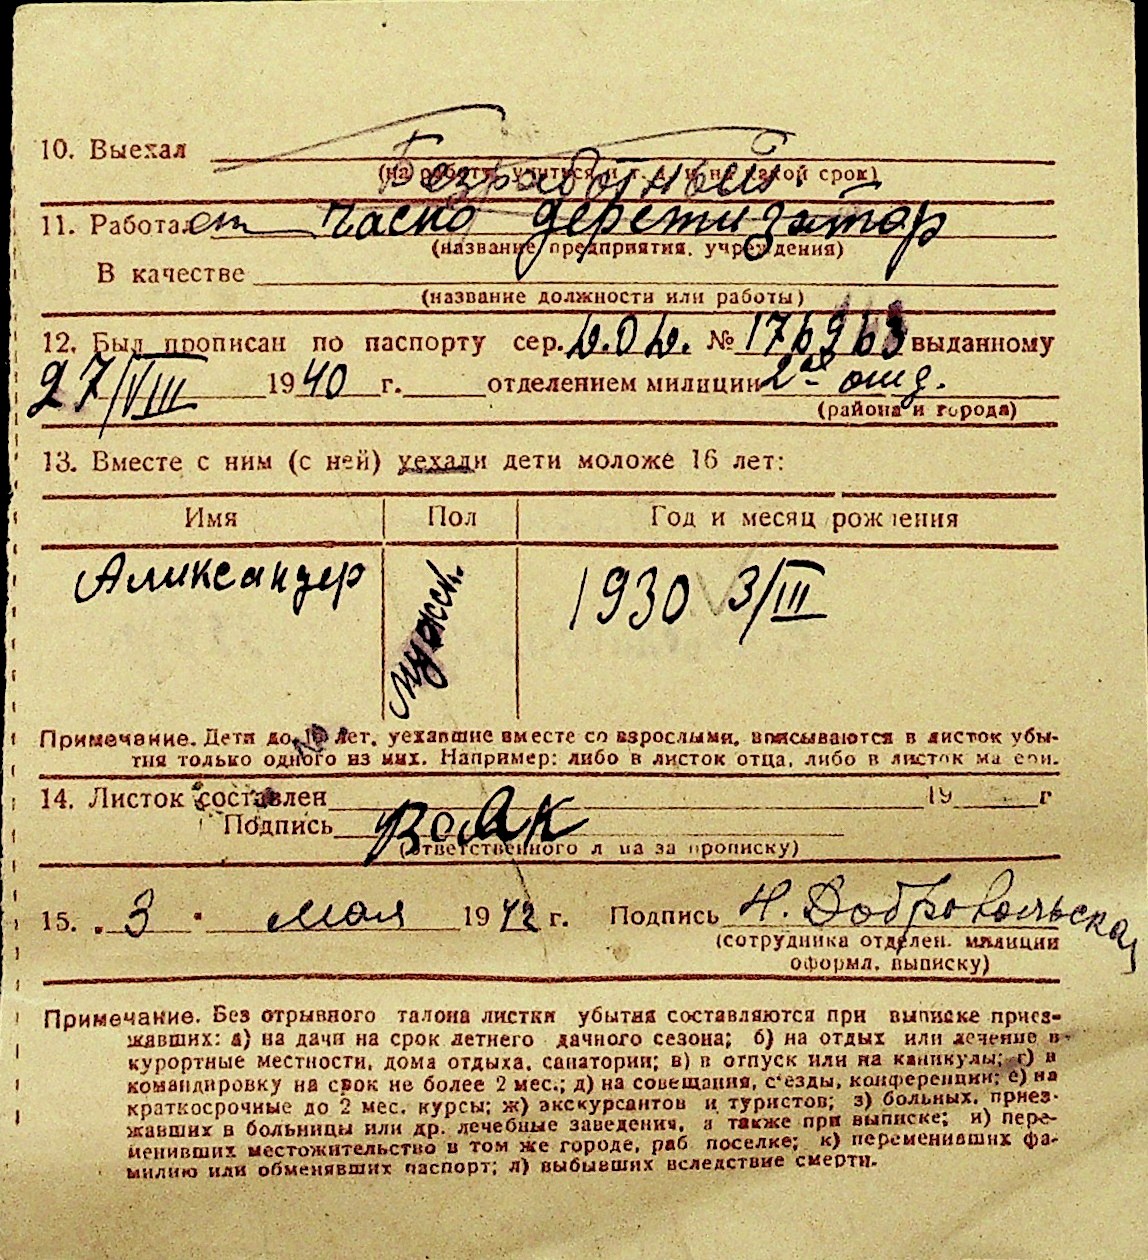 10. Выехал
Безработный.
(на работу, учиться и т. д. и на какой срок)
11. Работал дератизатор
(название предприятия, учреждения)
В качестве
(название должности или работы)
12. Был прописан по паспорту сер. № 176963 выданному
27/VIII 1940 г. отделением милиции 2ое отд.
(района и города)
13. Вместе с ним (с ней) уехали дети моложе 16 лет:
Имя Пол Год и месяц рождения
Александер мужск. 1930 3/III
Примечание. Дети до 16 лет, уехавшие вместе со взрослыми, вписываются в листок убы-
тия только одного из них. Например: либо в листок отца, либо в листок матери.
14. Листок составлен 19 г
Подпись
(ответственного лица за прописку)
15. 3 мая 1942 г. Подпись Н. Добровольская
(сотрудника отделен. милиции
оформл. выписку)
Примечание. Без отрывного талона листки убытия составляются при выписке приез-
жавших: а) на дачи на срок летнего дачного сезона; б) на отдых или лечение в
курортные местности, дома отдыха, санатории; в) в отпуск или на каникулы; г) в
командировку на срок не более 2 мес.; д) на совещания, с'езды, конференции; е) на
краткосрочные до 2 мес. курсы; ж) экскурсантов и туристов; з) больных, приез-
жавших в больницы или др. лечебные заведения, а также при выписке; и) пере-
менивших местожительство в том же городе, раб поселке; к) переменивших фа-
милию или обменявших паспорт; л) выбывших вследствие смерти.